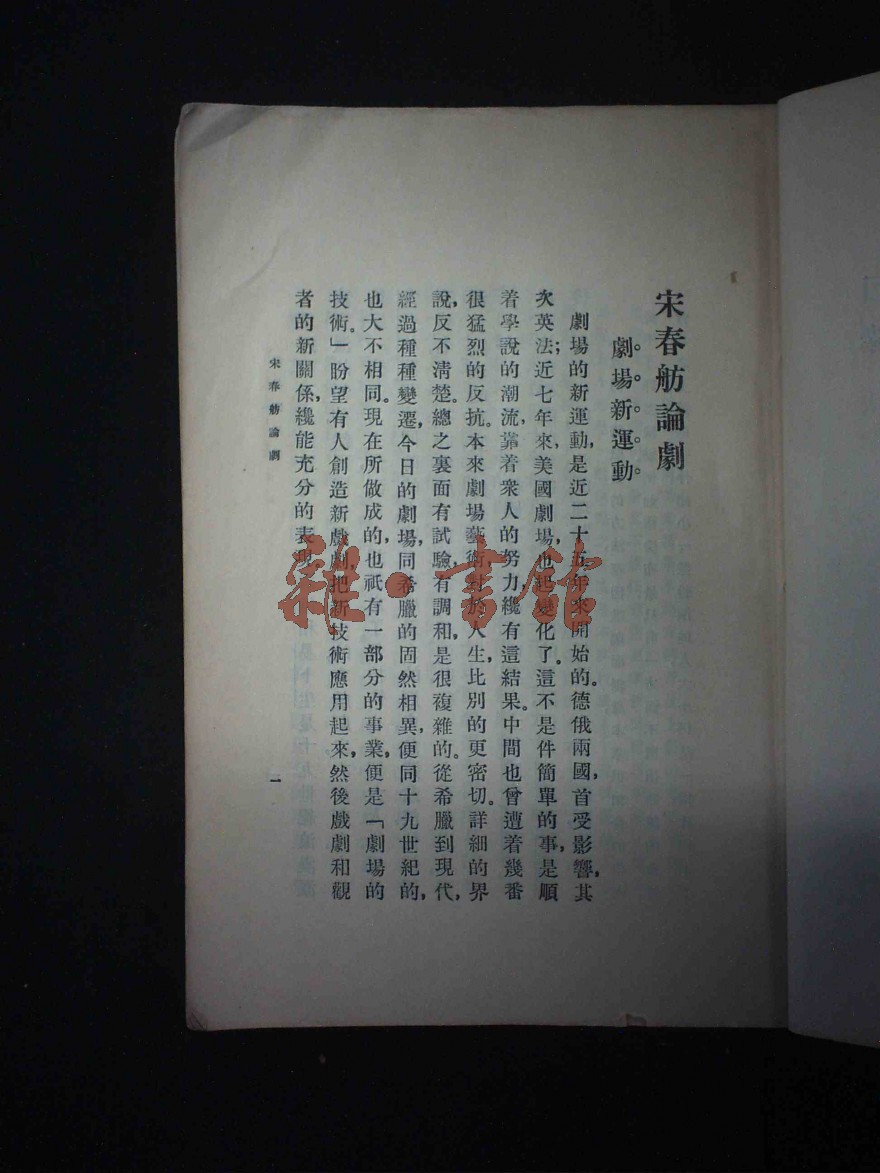 宋春舫論劇
劇場新運動
劇場的新運動，是近二十五年來開始的。德俄兩國，首受影響，其
次英法；近七年來，美國劇場，也起變化了。這不是件簡單的事，是順
着學說的潮流，靠着衆人的努力，纔有這結果。中間也曾遭着幾番
很猛烈的反抗。本來劇場藝術，對於人生，比別的更密切。詳細的界
說，反不清楚。總之裏面有試驗，有調和，是很複雜的。從希臘到現代，
經過種種變遷，今日的劇場，同希臘的固然相異，便同十九世紀的，
也大不相同。現在所做成的，也祇有一部分的事業，便是「劇場的
技術。」盼望有人創造新戲劇，把新技術應用起來，然後戲劇和觀
者的新關係，纔能充分的表現。
宋春舫論劇
一
雜·書館